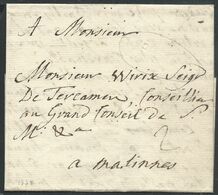 A Monsieur
Monsieur Wirix Seigr
De Tercamen, Conseillier
au Grand Conseil de S
Mt. &a
2
a malinnes